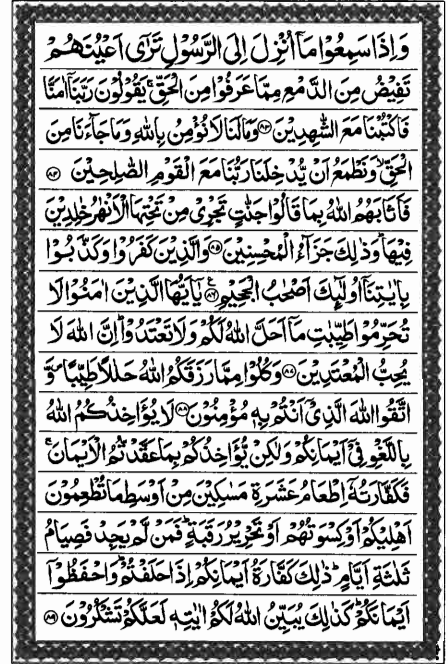 وَاِذَا سَمِعُوْا مَاۤ اُنْزِلَ اِلَى الرَّسُوْلِ تَرٰۤى اَعْيُنَهُمْ
تَفِيْضُ مِنَ الدَّمْعِ مِمَّا عَرَفُوْا مِنَ الْحَقِّ ۚ يَقُوْلُوْنَ رَبَّنَاۤ اٰمَنَّا
فَاكْتُبْنَا مَعَ الشّٰهِدِيْنَ ۝۸۳ وَمَا لَنَا لَا نُؤْمِنُ بِاللّٰهِ وَمَا جَآءَنَا مِنَ
الْحَقِّ ۙ وَنَطْمَعُ اَنْ يُّدْخِلَنَا رَبُّنَا مَعَ الْقَوْمِ الصّٰلِحِيْنَ ۝۸۴
فَاَثَابَهُمُ اللّٰهُ بِمَا قَالُوْا جَنّٰتٍ تَجْرِيْ مِنْ تَحْتِهَا الْاَنْهٰرُ خٰلِدِيْنَ
فِيْهَا ؕ وَذٰلِكَ جَزَآءُ الْمُحْسِنِيْنَ ۝۸۵ وَالَّذِيْنَ كَفَرُوْا وَكَذَّبُوْا
بِاٰيٰتِنَاۤ اُولٰٓئِكَ اَصْحٰبُ الْجَحِيْمِ ۝۸۶ يٰۤاَيُّهَا الَّذِيْنَ اٰمَنُوْا لَا
تُحَرِّمُوْا طَيِّبٰتِ مَاۤ اَحَلَّ اللّٰهُ لَكُمْ وَلَا تَعْتَدُوْا ؕ اِنَّ اللّٰهَ لَا
يُحِبُّ الْمُعْتَدِيْنَ ۝۸۷ وَكُلُوْا مِمَّا رَزَقَكُمُ اللّٰهُ حَلٰلًا طَيِّبًا ۪ وَّ
اتَّقُوا اللّٰهَ الَّذِيْۤ اَنْتُمْ بِهٖ مُؤْمِنُوْنَ ۝۸۸ لَا يُؤَاخِذُكُمُ اللّٰهُ
بِاللَّغْوِ فِيْۤ اَيْمَانِكُمْ وَلٰكِنْ يُّؤَاخِذُكُمْ بِمَا عَقَّدْتُّمُ الْاَيْمَانَ ۚ
فَكَفَّارَتُهٗۤ اِطْعَامُ عَشَرَةِ مَسٰكِيْنَ مِنْ اَوْسَطِ مَا تُطْعِمُوْنَ
اَهْلِيْكُمْ اَوْ كِسْوَتُهُمْ اَوْ تَحْرِيْرُ رَقَبَةٍ ؕ فَمَنْ لَّمْ يَجِدْ فَصِيَامُ
ثَلٰثَةِ اَيَّامٍ ؕ ذٰلِكَ كَفَّارَةُ اَيْمَانِكُمْ اِذَا حَلَفْتُمْ ؕ وَاحْفَظُوْۤا
اَيْمَانَكُمْ ؕ كَذٰلِكَ يُبَيِّنُ اللّٰهُ لَكُمْ اٰيٰتِهٖ لَعَلَّكُمْ تَشْكُرُوْنَ ۝۸۹